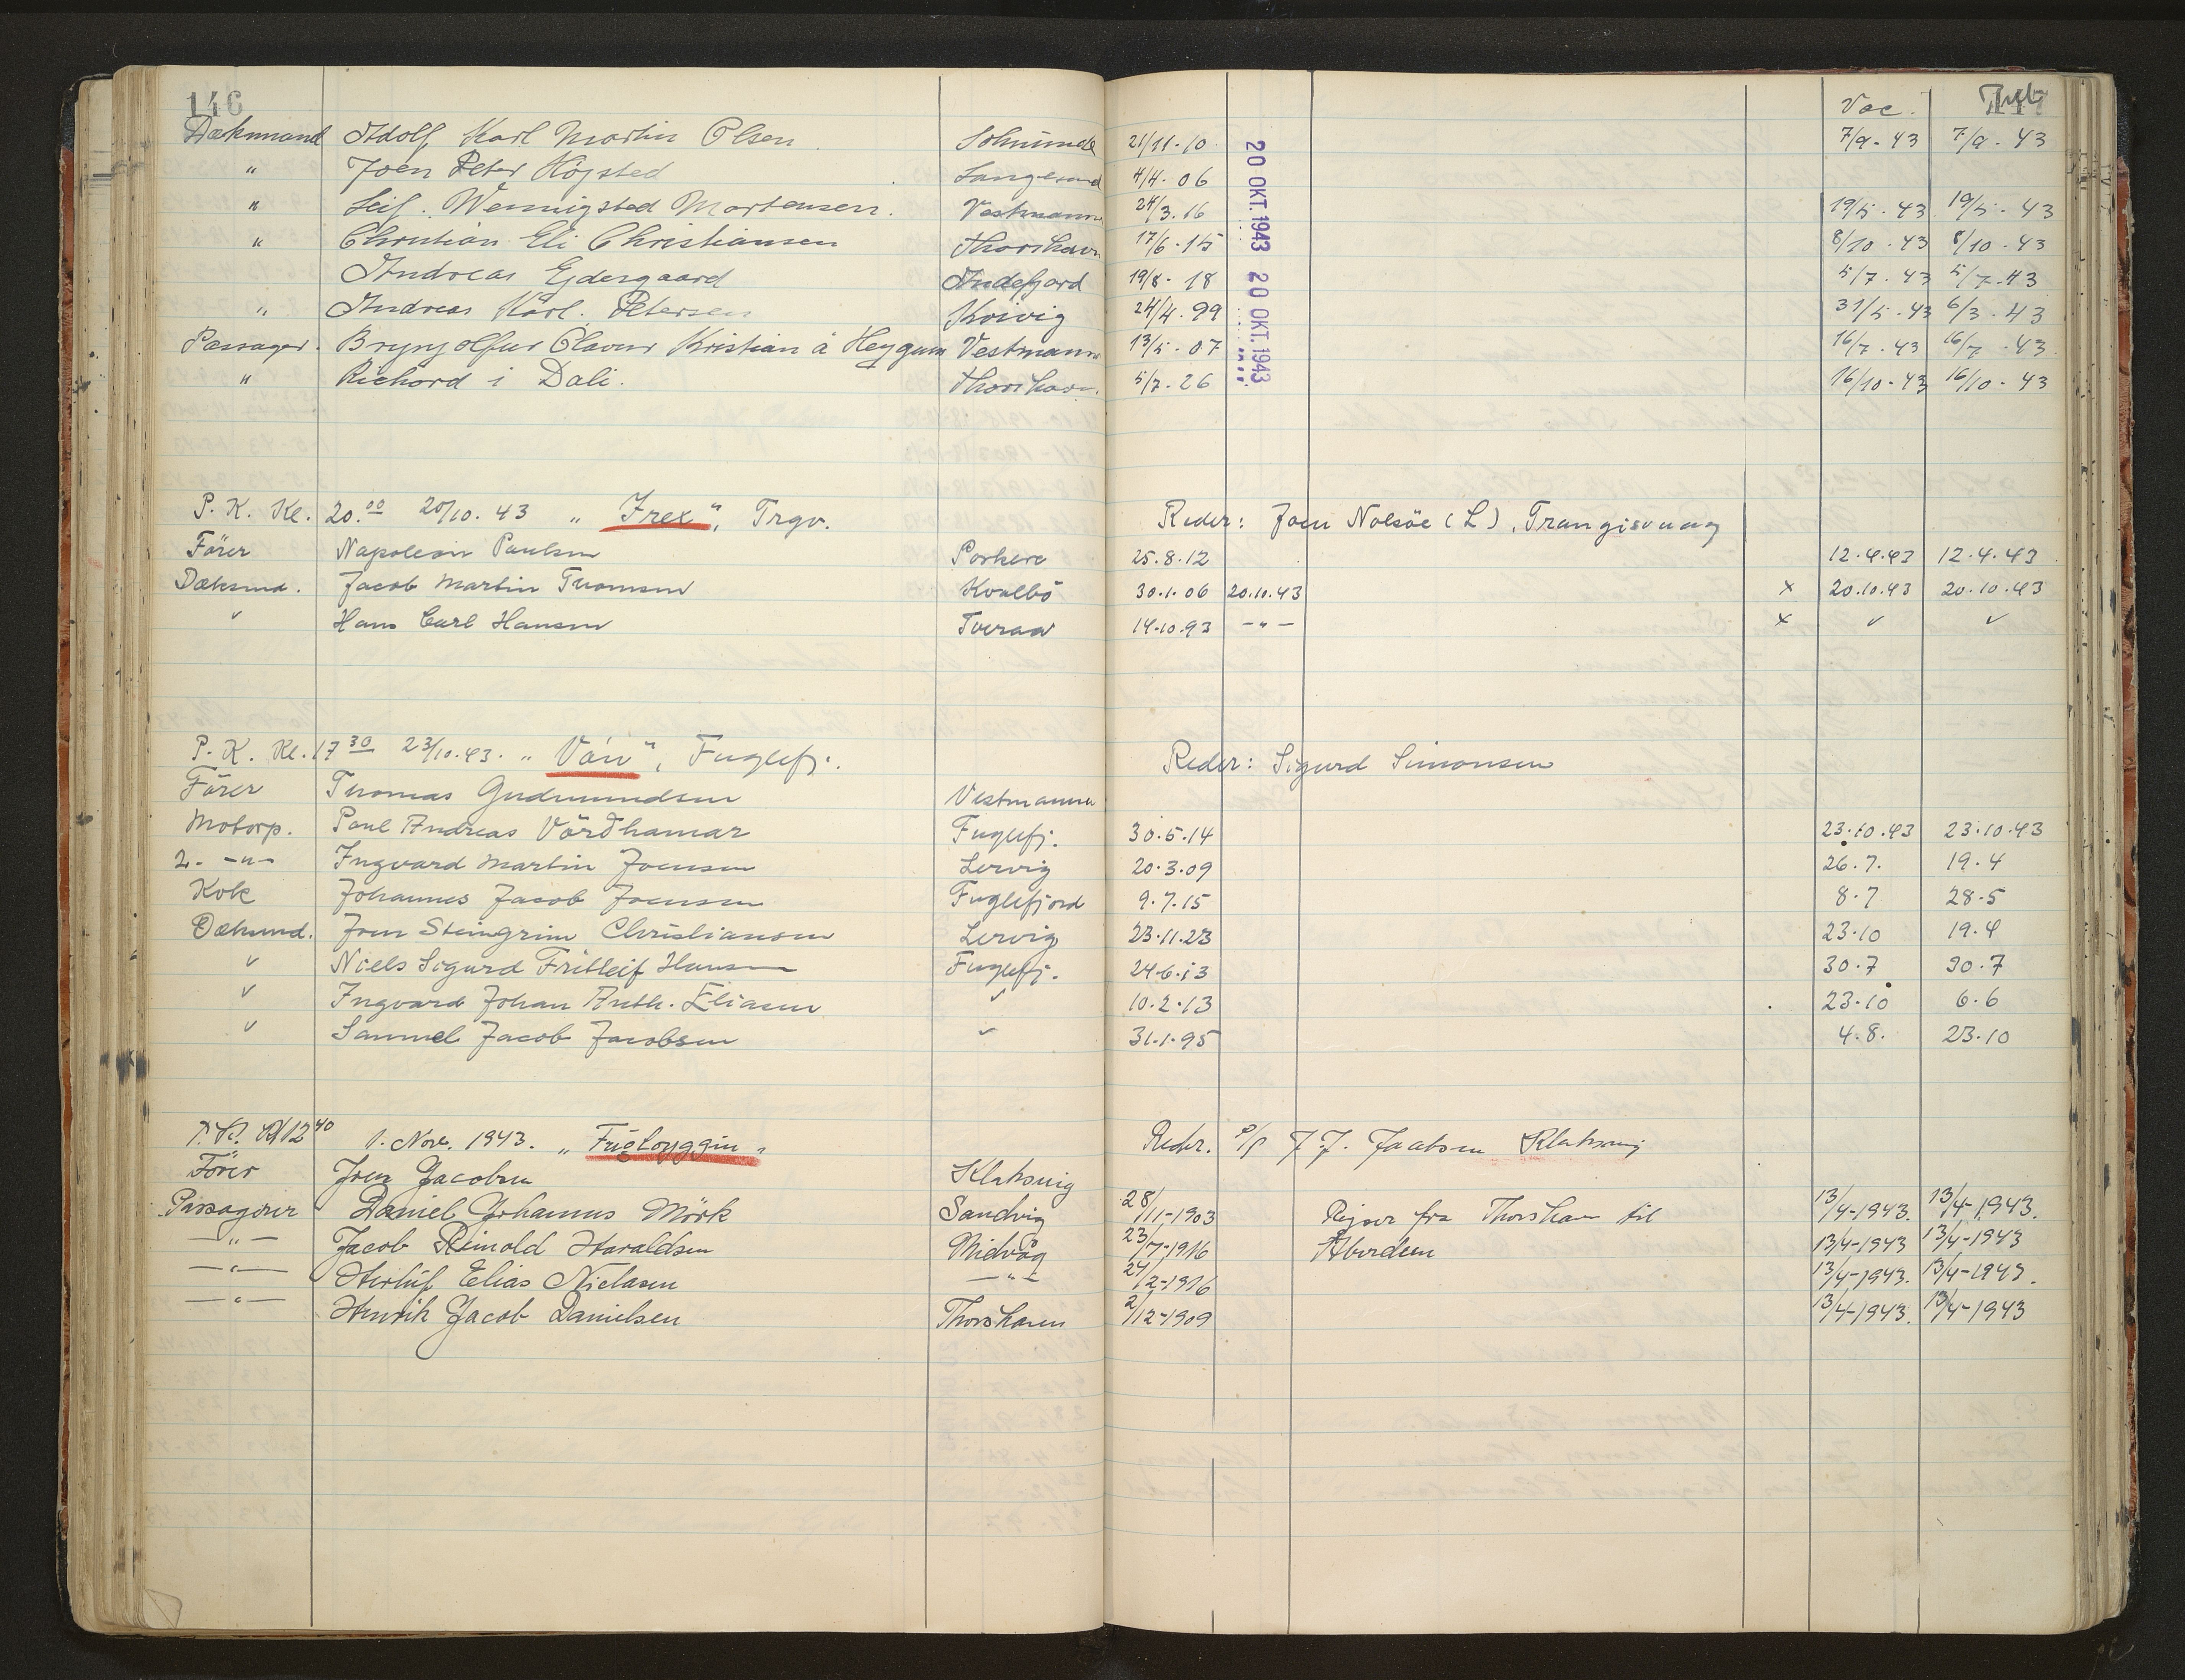 146
Vac.
Dæksmand Adolf Karl Martin Olsen 21/11-10 7/9-43 7/9-43
" Joen Peter Højsted Langesand 4/4-06
" Leif. Wennigsted Mortensen. Vestmanna 24/3.16 19/5-43 19/5-43
" Christian Eli Christiansen Thorshavn 17/6-15 8/10-43 8/10-43
Andreas Ejdesgaard Andefjord 19/8-18 5/7-43 5/7-43
" Andreas Karl. Petersen Kvivig 24/4.99 31/5-43 6/3-43
Passager. Brynjolfur Clavur Kristian á Heygum Vestmanna 13/5-07 16/7-43 16/7-43
" Richard i Dali. Thorshavn. 5/7-26 16/10-43 16/10-43
20 OKT. 1943 20 OKT. 1943
P. K. Kl. 20.00 20/10.43 "Irex", Trgv. Reder: Joen Nolsöe (L), Trangisvaag
Förer Napoleon Paulsen Porkere 25.8.12 12.4.43 12.4.43
Dæksmd. Jacob Martin Thomsen Kvalbö 30.1.06 20.10.43 x 20.10.43 20.10.43
" Hans Carl Hansen Tveraa 14.10.93 -"- x " "
P. K. Kl. 17 30 23/10.43. "Ván", Fuglefj. Reder: Sigurd Simonsen
Förer Thomas Gudmundsen Vestmanna
Motorp. Poul Andreas Vördhamar Fuglefj. 30.5.14 23.10.43 23.10.43
2. -"- Ingvard Martin Joensen Lervig 20.3.09 26.7. 19.4
Kok Johannes Jacob Joensen Fuglefjord 9.7.15 8.7 28.5
Dæksmd. Joen Steingrim Christiansen Lervig 23.11.23 23.10 19.4
" Niels Sigurd Fritleif Hansen Fuglefj. 24.6.13 30.7 30.7
" Ingvard Johan Anth. Eliasen " 10.2.13 23.10 6.6
" Samuel Jacob Jacobsen " 31.1.95 4.8. 23.10
P.K. Kl 12 40 1. Nov. 1943. "Frügloyggin" Reder. P/P J. J. Jacobsen Klaksvig
Förer Jren Jacobsen Klaksvig
Passagerer Daniel Johannus Mörk Sandvig 28/11-1903 Rejser fra Thorshavn til 13/4-1943. 13/4-1943.
-"- Jacob Reinold Haraldsen Midvåg 23/7-1916 Aberdeen 13/4-1943 13/4-1943
-"- Herluf Elias Nielasen -"- 24/2-1916 13/4-1943. 13/4-1943.
-"- Henrik Jacob Danielsen Thorshavn 2/12-1909 13/4-1943. 13/4-1943